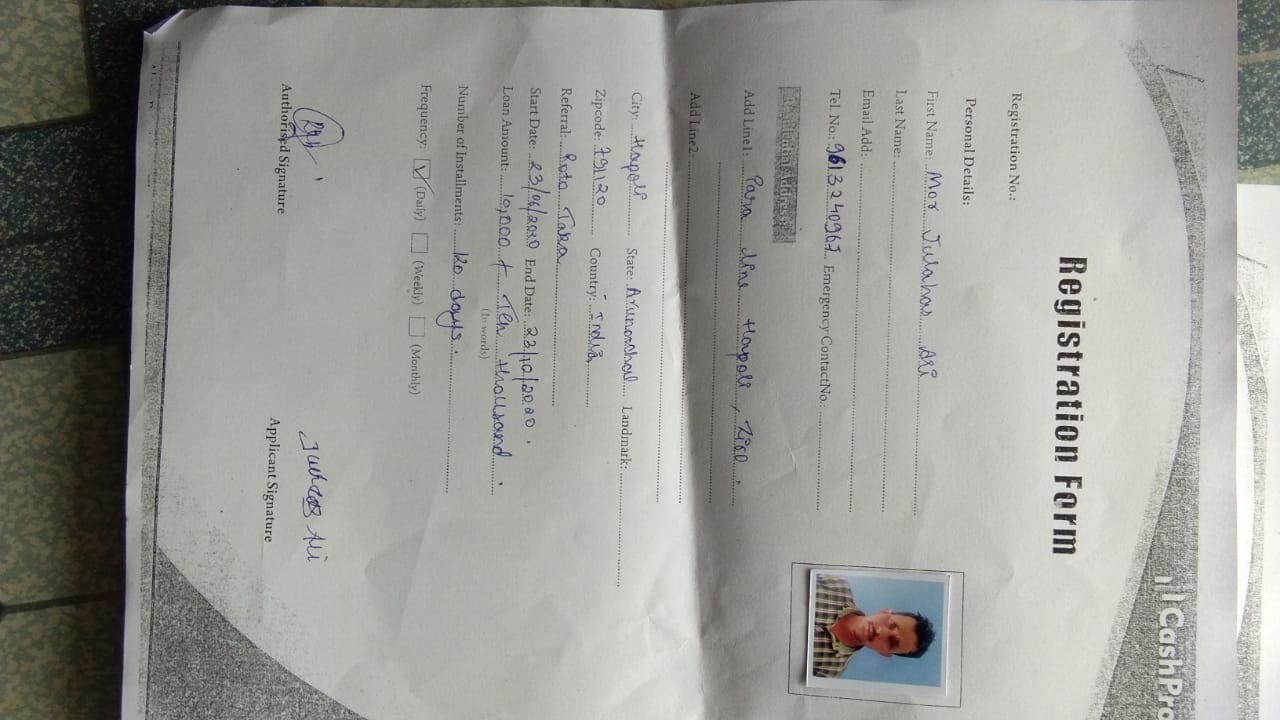 CashPro
Registration Form
Registration No.:
Personal Details:
First Name: Mor Julahas Ali
Last Name:
Email Add:
Tel. No.: 9613240967 Emergency ContactNo.:
Residential Address:
Add Line1: Para Line Hapoli, Ziro.
Add Line2:
City: Hapoli State: Arunachal Landmark:
Zipcode: 791120 Country: India
Referral: Rota Taka
Start Date: 23/06/2020 End Date: 23/10/2020.
Loan Amount: 10,000 + Ten thousand.
(In words)
Number of Installments: 120 days.
Frequency: (Daily) (Weekly) (Monthly)
Ali
Authorised Signature Applicant Signature